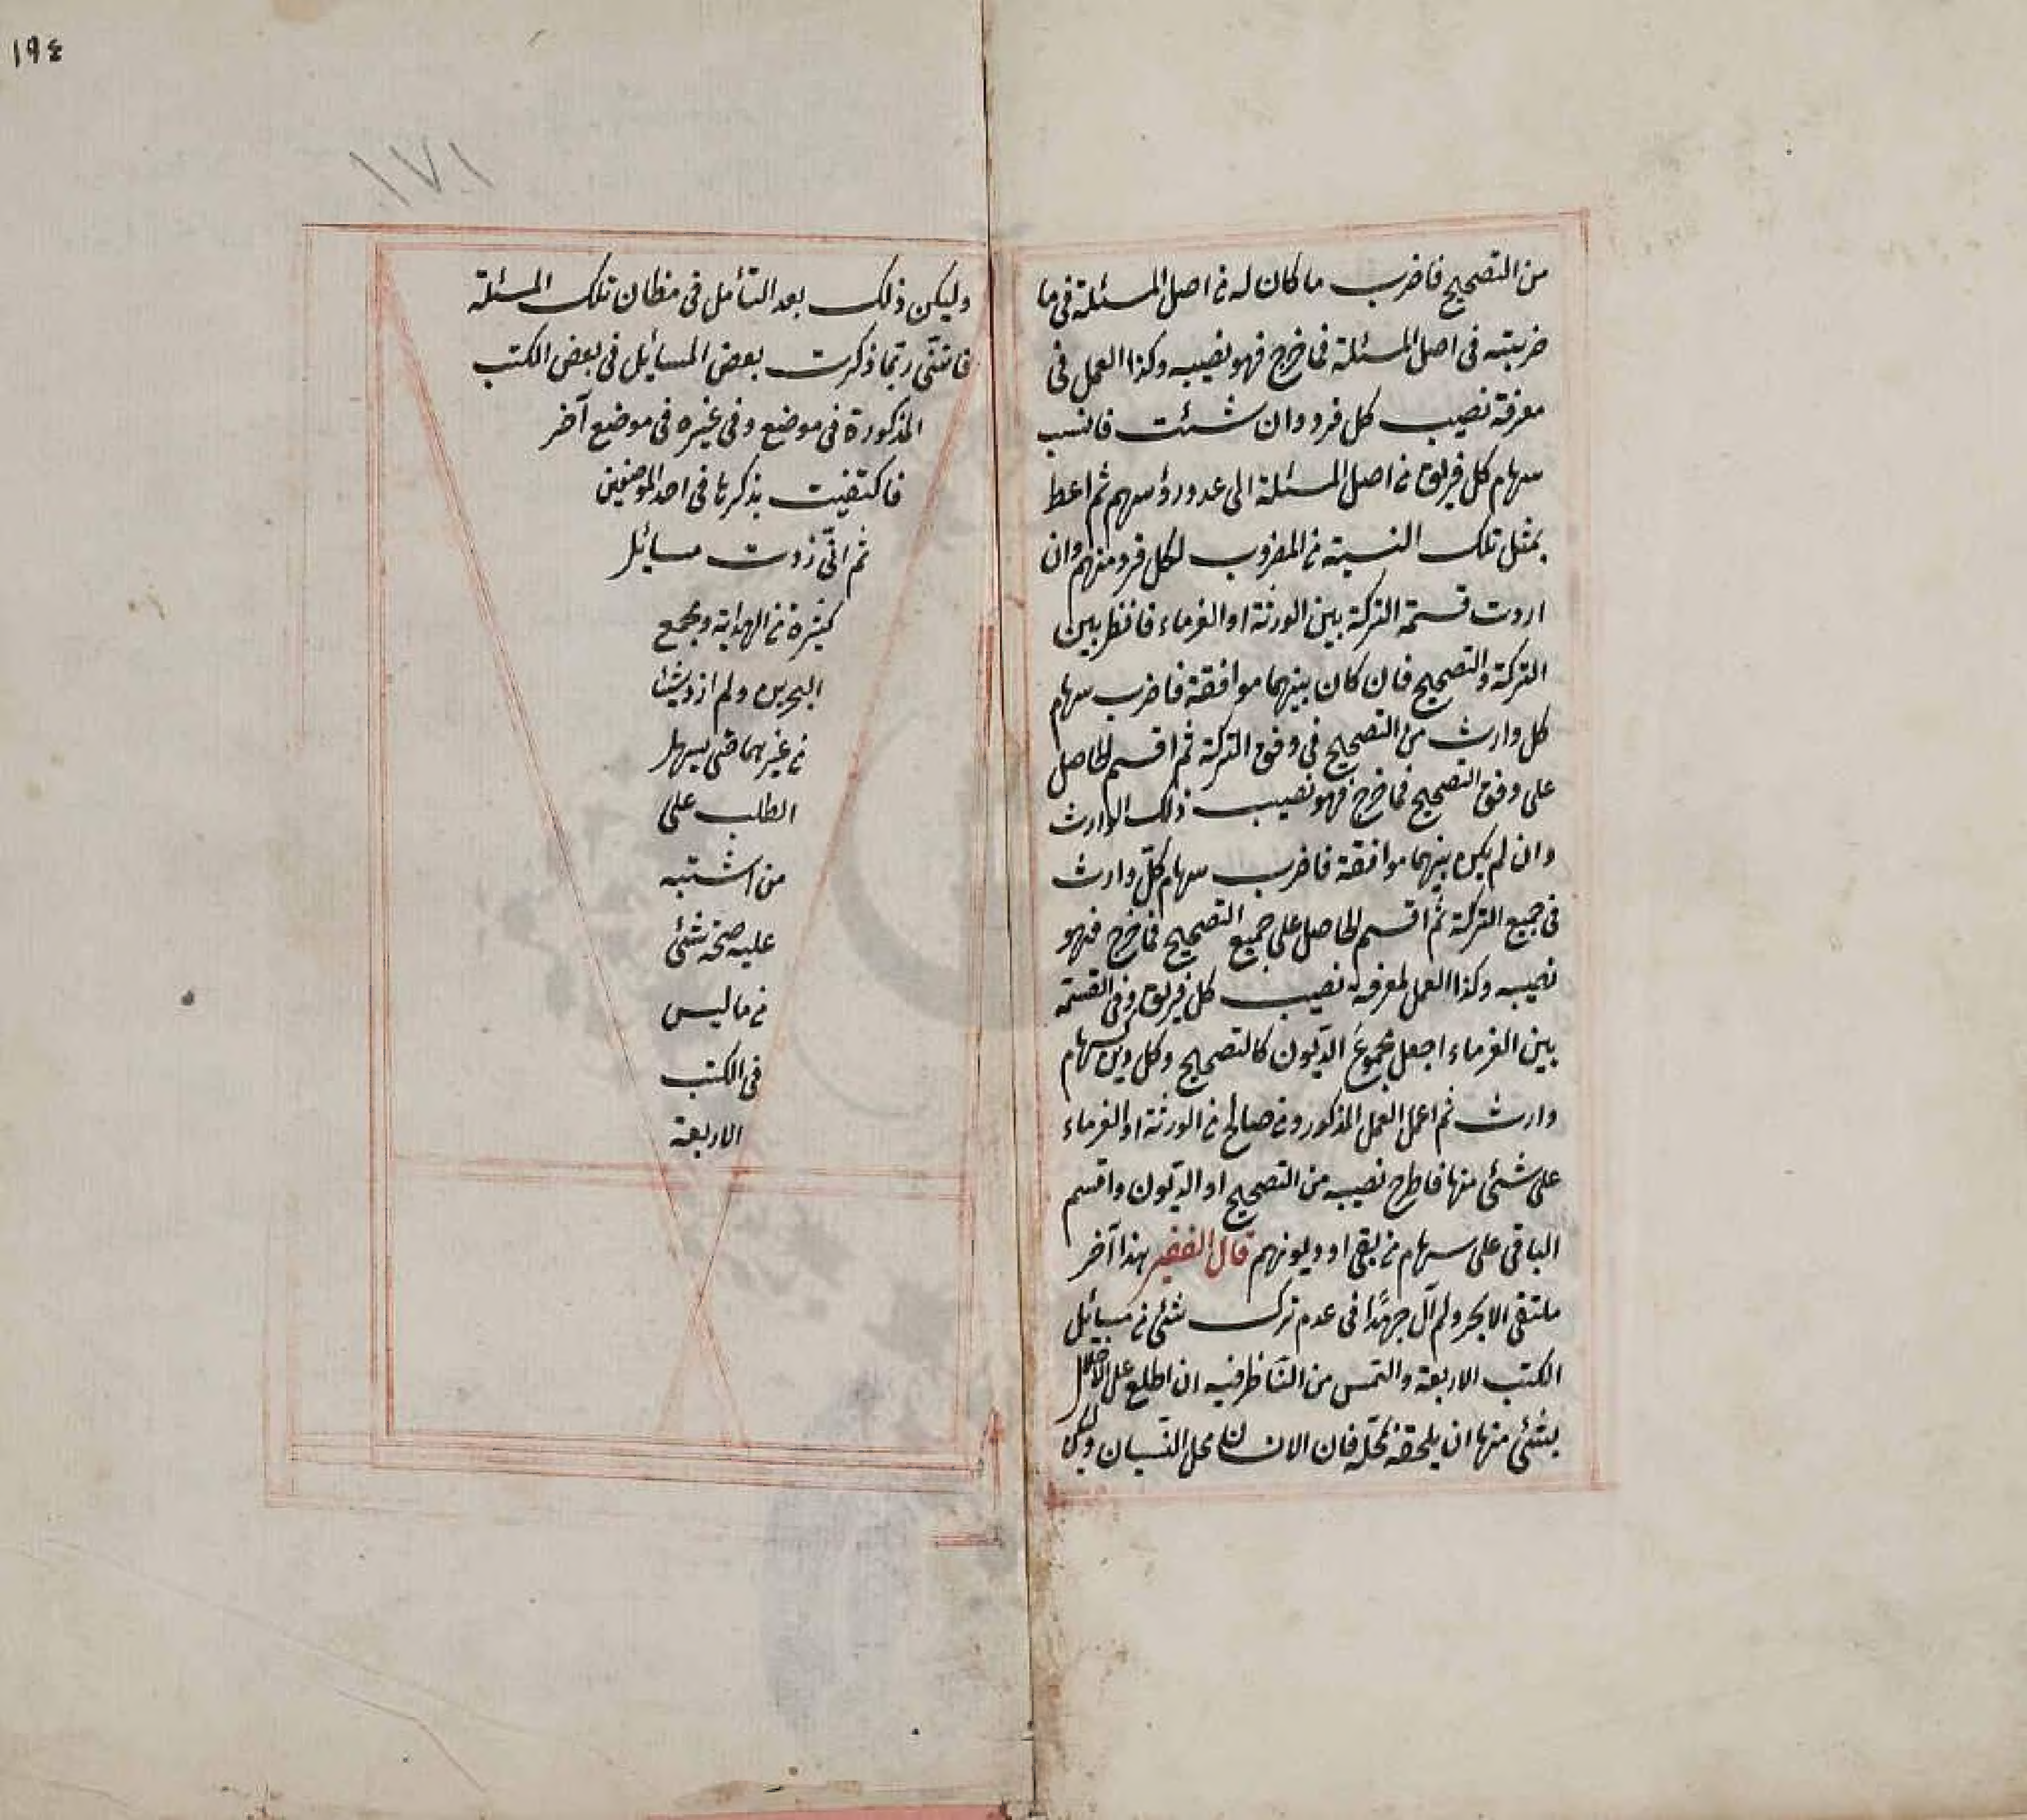 من التصحيح فاضرب ما كان له من اصل المسئلة فى ما
ضربته فى اصل المسئلة فما خرج فهو نصيبه وكذا العمل فى
معرفة نصيب كل فرد وان شئت فانسب
سهام كل فريق من اصل المسئلة الى عدد رؤسهم ثم اعط
بمثل تلك النسبة من المضروب لكل فرد منهم وان
اردت قسمة التركة بين الورثة او الغرماء فانظر بين
التركة والتصحيح فان كان بينهما موافقة فاضرب سهام
كل وارث من التصحيح فى وفق التركة ثم اقسم الحاصل
على وفق التصحيح فما خرج فهو نصيب ذلك الوارث
وان لم يكن بينهما موافقة فاضرب سهام كلّ وارث
فى جميع التركة ثم اقسم الحاصل على جميع التصحيح فما خرج فهو
نصيبه وكذا العمل لمعرفة نصيب كل فريق وفى القسمة
بين الغرماء اجعل مجموع الديون كالتصحيح وكل دين كسهام
وارث ثم اعمل العمل المذكور ومن صالح من الورثة او الغرماء
على شئ منها فاطرح نصيبه من التصحيح او الديون واقسم
الباقى على سهام من بقى او ديونهم قال الفقير هذا آخر
ملتقى الابحر ولم آل جهدًا فى عدم ترك شئ من مسائل
الكتب الاربعة والتمس من الناظر فيه ان اطلع على الاخلال
بشئ منها ان يلحقه بمحله فان الانسان محل النسيان وليكن
١٩٤
١٧١
وليكن ذلك بعد التأمل فى مظان تلك المسئلة
فانّنى ربّما ذكرت بعض المسائل فى بعض الكتب
المذكورة فى موضع وفى غيره فى موضع آخر
فاكتفيت بذكرها فى احد الموضعين
ثم انّى زدت مسائل
كثيرة من الهداية ومجمع
البحرين ولم ازد شيئا
من غيرهما حتى يسهل
الطلب على
من اشتبه
عليه صحة شئ
من ما ليس
فى الكتب
الاربعة